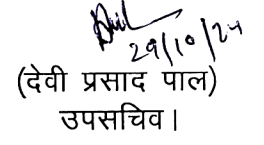 29/10/24
(देवी प्रसाद पाल)
उपसचिव।